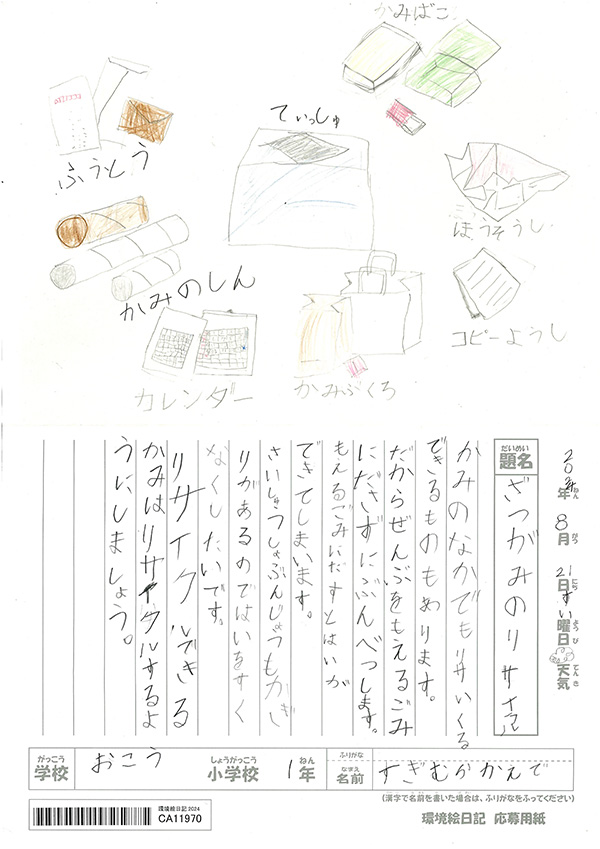 かみばこ
ふうとう
てぃっしゅ
ほうそうし
かみのしん
コピーようし
カレンダー
かみぶくろ
2024年 8月 21日 すい曜日 天気
ねん がつ にち ようび てんき
だいめい
題名
ざつがみのリサイクル
かみのなかでもりさいくる
できるものもあります。
だからぜんぶをもえるごみ
にださずにぶんべつします。
もえるごみにだすとはいが
できてしまいます。
さいしゅうしょぶんじょうもかぎ
りがあるのではいをすく
なくしたいです。
リサイクルできる
かみはリサイクルするよ
うにしましょう。
がっこう
学校
おこう
しょうがっこう
小学校
1
ねん
年
ふりがな
なまえ
名前
すぎむらかえで
(漢字で名前を書いた場合は、ふりがなをふってください)
環境絵日記2024
CA11970
環境絵日記 応募用紙